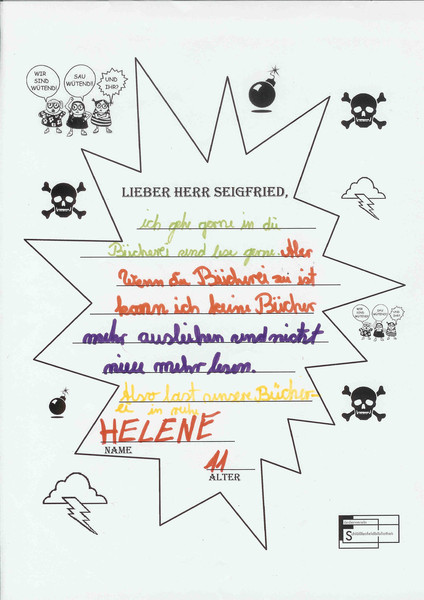 WIR SIND WÜTEND!
SAU WÜTEND!!
UND IHR?
LIEBER HERR SEIGFRIED,
ich gehe gerne in die
Bücherei und lese gerne. Aber
Wenn die Bücherei zu ist
kann ich keine Bücher
mehr ausleihen und nichts
neue mehr lesen.
Also last unsere Bücher-
ei in ruhe
HELENE
NAME
11
ALTER
WIR SIND WÜTEND!
SAU WÜTEND!!
UND IHR?